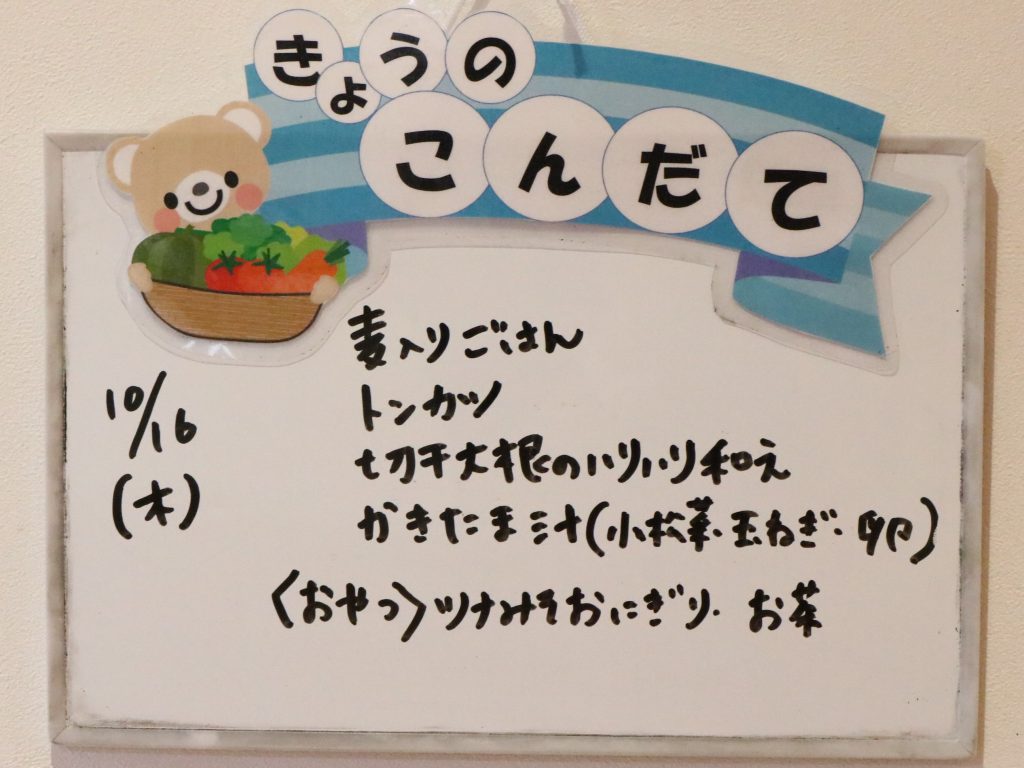 きょうの
こんだて
麦入りごはん
10/16
トンカツ
(木)
切干大根のハリハリ和え
かきたま汁(小松菜・玉ねぎ・卵)
〈おやつ〉ツナみそおにぎり・お茶